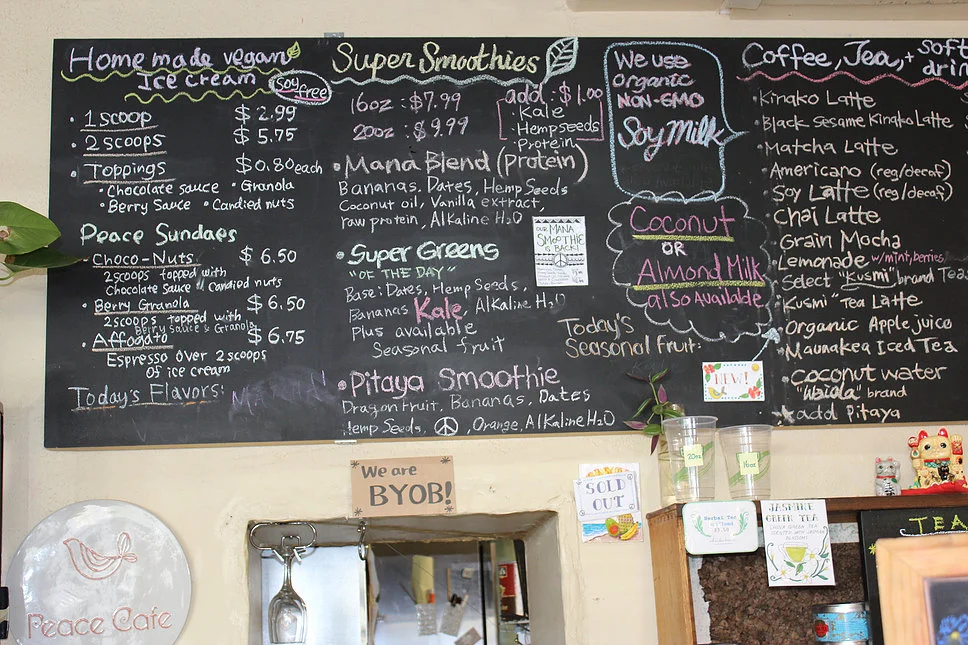 Home made vegan
Ice cream
Soy free
• 1 scoop $2.99
• 2 scoops $5.75
• Toppings $0.80 each
• Chocolate sauce • Granola
• Berry Sauce • Candied nuts
Peace Sundaes
• Choco-Nuts $6.50
2 scoops topped with
Chocolate Sauce Candied nuts
• Berry Granola $6.50
2 scoops topped with
Berry Sauce & Granola
• Affogato $6.75
Espresso over 2 scoops
of ice cream
Today's Flavors:
Super Smoothies
16oz : $7.99
20oz : $9.99
add : $1.00
• Kale
• Hemp seeds
• Protein
• Mana Blend (protein)
Bananas, Dates, Hemp Seeds
Coconut oil, Vanilla extract,
raw protein, Alkaline H2O
• Super Greens
"OF THE DAY"
Base: Dates, Hemp Seeds,
Bananas Kale, Alkaline H2O
Plus available
Seasonal fruit
• Pitaya Smoothie
Dragon Fruit, Bananas, Dates
Hemp Seeds, , Orange, Alkaline H2O
OUR MANA
SMOOTHIE
IS BACK!
We use
organic
NON-GMO
Soy Milk
Coconut
OR
Almond Milk
also Available
Today's
Seasonal Fruit:
NEW!
Coffee, Tea, + soft
drin
• Kinako Latte
• Black Sesame Kinako Latte
• Matcha Latte
• Americano (reg/decaf)
Soy Latte (reg/decaf)
• Chai Latte
• Grain Mocha
• Lemonade w/mint, berries
• Select "Kusmi" brand Teas
• Kusmi" Tea Latte
• Organic Apple juice
• Maunakea Iced Tea
• coconut water
"Waiola" brand
add Pitaya
We are
BYOB!
SOLD
OUT
20oz
16oz
Herbal Tea
JASMINE
GREEN TEA
TEA
Peace Cafe